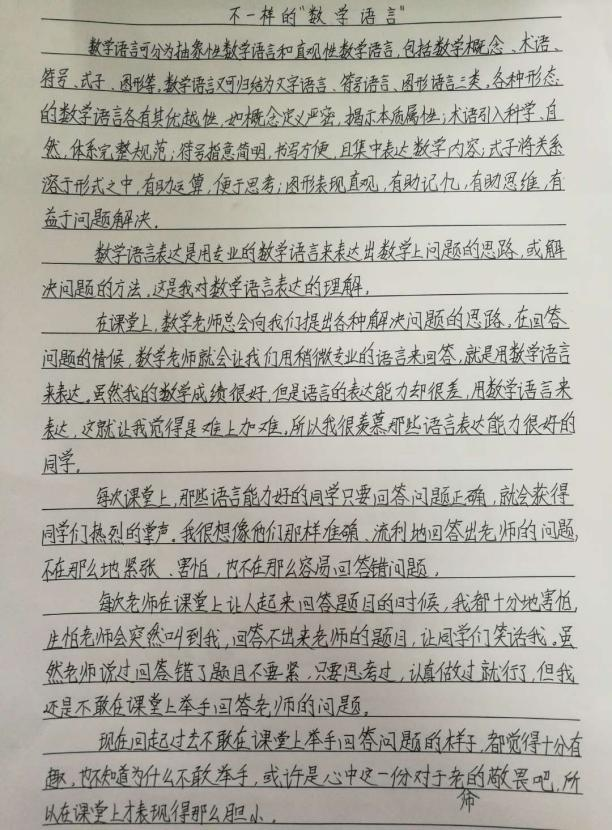 不一样的“数学语言”
数学语言可分为抽象性数学语言和直观性数学语言,包括数学概念、术语、
符号、式子、图形等。数学语言又可归结为文字语言、符号语言、图形语言三类。各种形态
的数学语言各有其优越性,如概念定义严密,揭示本质属性;术语引入科学、自
然,体系完整规范;符号指意简明,书写方便,且集中表达数学内容;式子将关系
溶于形式之中,有助运算,便于思考;图形表现直观,有助记忆,有助思维,有
益于问题解决。
数学语言表达是用专业的数学语言来表达出数学上问题的思路,或解
决问题的方法,这是我对数学语言表达的理解。
在课堂上,数学老师总会向我们提出各种解决问题的思路。在回答
问题的情候,数学老师就会让我们用稍微专业的语言来回答,就是用数学语言
来表达。虽然我的数学成绩很好,但是语言的表达能力却很差,用数学语言来
表达,这就让我觉得是难上加难。所以我很羡慕那些语言表达能力很好的
同学。
每次课堂上,那些语言能力好的同学只要回答问题正确,就会获得
同学们热烈的掌声。我很想像他们那样准确、流利地回答出老师的问题,
不在那么地紧张、害怕,也不在那么容易回答错问题。
每次老师在课堂上让人起来回答题目的时候,我都十分地害怕,
生怕老师会突然叫到我,回答不出来老师的题目,让同学们笑话我。虽
然老师说过回答错了题目不要紧,只要思考过,认真做过就行了,但我
还是不敢在课堂上举手回答老师的问题。
现在回起过去不敢在课堂上举手回答问题的样子,都觉得十分有
趣,也不知道为什么不敢举手,或许是心中这一份对于老师的敬畏吧,所
以在课堂上才表现得那么胆小。